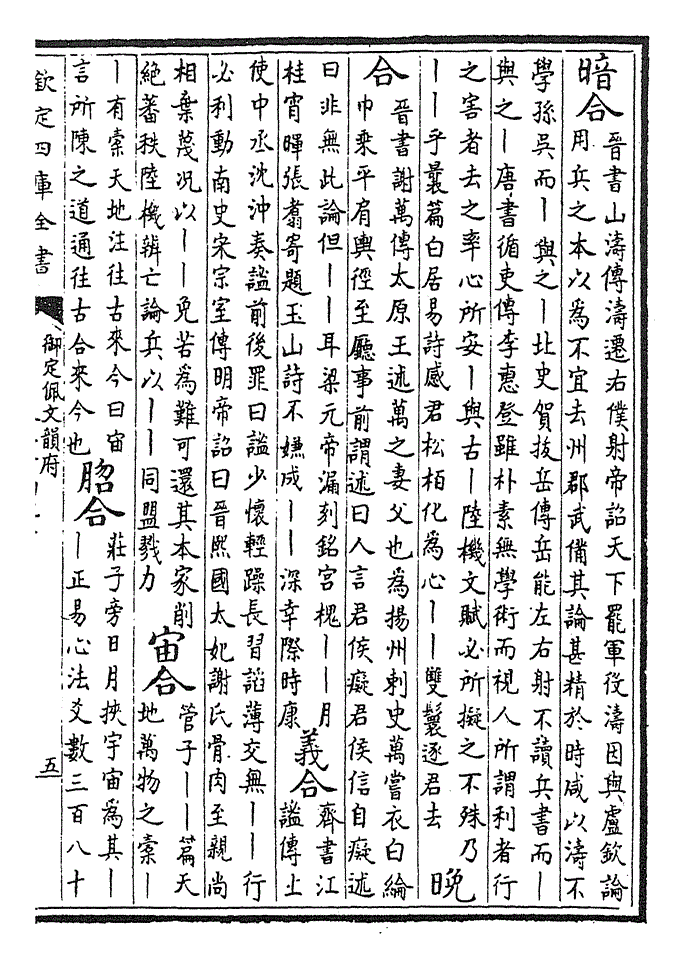 暗合
晉書山濤傳濤遷右僕射帝詔天下罷軍役濤因與盧欽論
用兵之本以為不宜去州郡武備其論甚精於時咸以濤不
學孫吳而｜與之｜北史賀拔岳傳岳能左右射不讀兵書而｜
與之｜唐書循吏傳李惠登雖朴素無學術而視人所謂利者行
之害者去之率心所安｜與古｜陸機文賦必所擬之不殊乃
｜｜乎曩篇白居易詩感君松栢化為心｜｜雙鬟逐君去
晚
合
晉書謝萬傳太原王述萬之妻父也為揚州刺史萬嘗衣白綸
巾乘平肩輿徑至廳事前謂述曰人言君侯癡君侯信自癡述
曰非無此論但｜｜耳梁元帝漏刻銘宮槐｜｜月
桂宵暉張翥寄題玉山詩不嫌成｜｜深幸際時康
義合
齊書江
謐傳上
使中丞沈沖奏謐前後罪曰謐少懷輕躁長習諂薄交無｜｜行
必利動南史宋宗室傳明帝詔曰晉熙國太妃謝氏骨肉至親尚
相棄蔑况以｜｜免苦為難可還其本家削
絶蕃秩陸機辨亡論兵以｜｜同盟戮力
宙合
管子｜｜篇天
地萬物之槖｜
｜有槖天地注往古來今曰宙
言所陳之道通往古合來今也
脗合
莊子旁日月挾宇宙為其｜
｜正易心法爻數三百八十
欽定四庫全書
御定佩文韻府
五